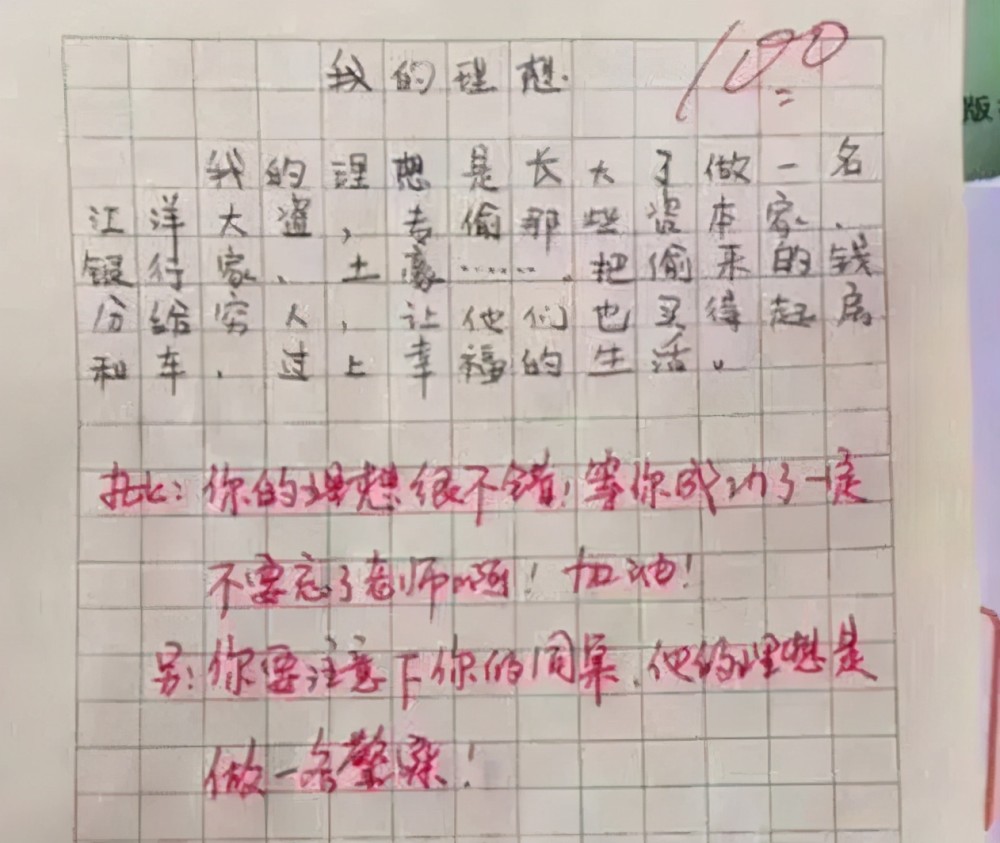 我的理想.
100
我的理想是长大了做一名
江洋大盗，去偷那些资本家、
银行家、土豪……。把偷来的钱
分给穷人，让他们也买得起房
和车，过上幸福的生活。
批：你的理想很不错！等你成功了一定
不要忘了老师啊！加油！
另：你要注意下你的同桌，他的理想是
做一名警察！
版